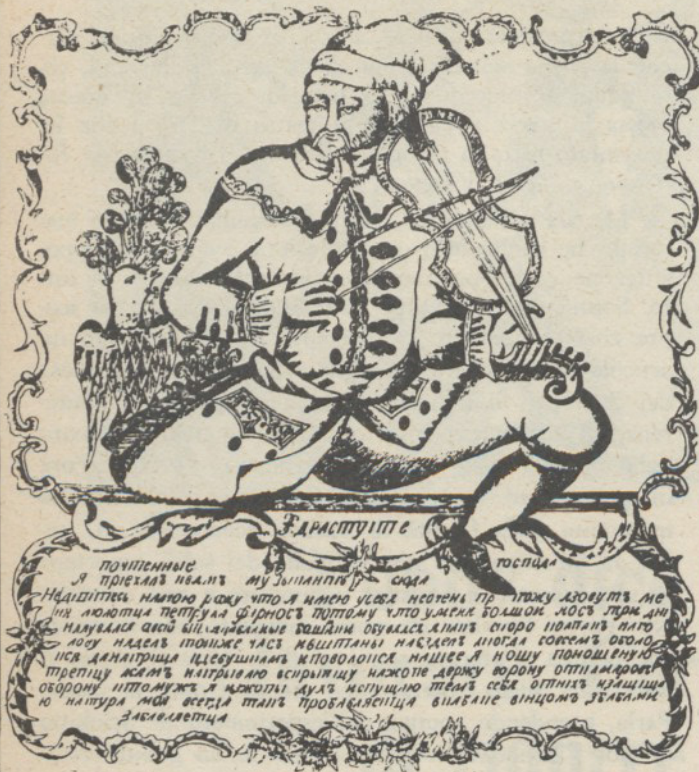 Здрастуite
почтенные господа
Я приехалъ квамъ музыкантъ сюда
рожу что я имею усебя неочень пригожу азовутъ ме
молотца петруха фарносъ потому что уменя большой носъ три дни
надувался башмаки обувался акакъ скоро колпакъ наго
лову наделъ тотже часъ иштаны аногда совсемъ оболо
кся кдевушкамъ иповолокся нашее я ношу поношеную
трепицу вамъ наигрываю вскрыпицу нажопе держу ворону откамаровъ
оборону ктомужъ я изжопы духъ испущаю темъ себя отнихъ изащища
ю натура моя всегда такъ пробавляетца ипиво ивиномъ збабами
забавляетца